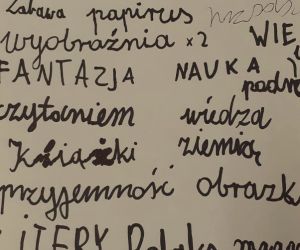 Zabawa papirus
wyobraźnia x2 WIE
FANTAZJA NAUKA
czytaniem wiedza
Książki ziemią
przyjemność obrazk
LITERY